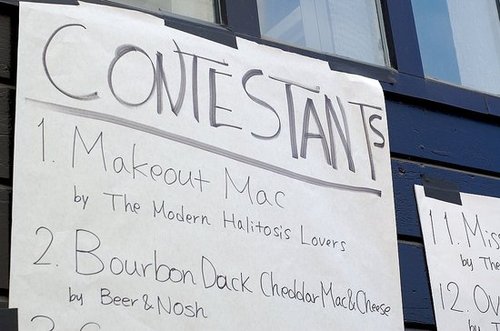 CONTESTANTS
1. Makeout Mac
by The Modern Halitosis Lovers
2. Bourbon Dack Cheddar Mac&Cheese
by Beer & Nosh
11. Miss
by The
12. Ov
by